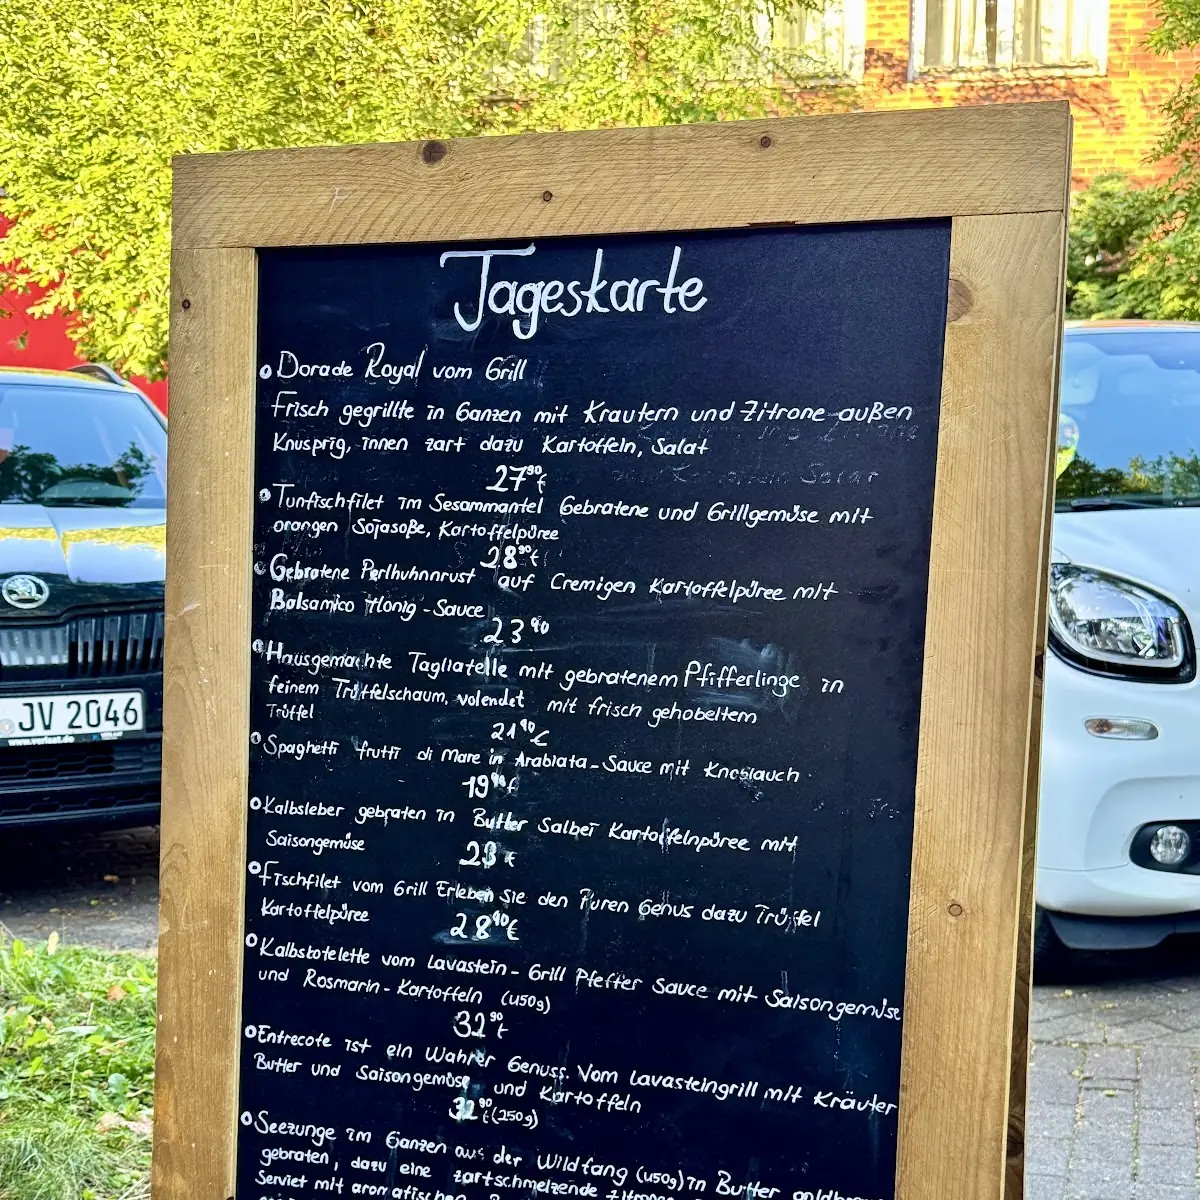 Tageskarte
Dorade Royal vom Grill
Frisch gegrillte in Ganzen mit Krautern und Zitrone außen
Knusprig, innen zart dazu Kartoffeln, Salat
27⁹⁰€
Tunfischfilet im Sesammantel Gebratene und Grillgemüse mit
orangen Sojasoße, Kartoffelpüree
28⁹⁰€
Gebratene Perlhuhnnrust auf Cremigen Kartoffelpüree mit
Balsamico Honig-Sauce
23⁹⁰
Hausgemachte Tagliatelle mit gebratenem Pfifferlinge in
feinem Trüffelschaum, volendet mit frisch gehobeltem
Trüffel
21⁹⁰€
Spaghetti frutti di Mare in Arabiata-Sauce mit Knoblauch
19⁹⁰€
Kalbsleber gebraten in Butter Salbei Kartoffelnpüree mit
Saisongemüse
23 €
Fischfilet vom Grill Erleben Sie den Puren Genus dazu Trüffel
Kartoffelpüree
28⁹⁰€
Kalbskotelette vom Lavastein-Grill Pfeffer Sauce mit Saisongemüse
und Rosmarin-Kartoffeln (450g)
32⁹⁰€
Entrecote ist ein Wahrer Genuss. Vom Lavasteingrill mit Kräuter
Butter und Saisongemüse und Kartoffeln
32⁹⁰€ (250g)
Seezunge im Ganzen aus der Wildfang (450g) in Butter
gebraten, dazu eine zartschmelzende
Serviet mit aromatischen
JV 2046